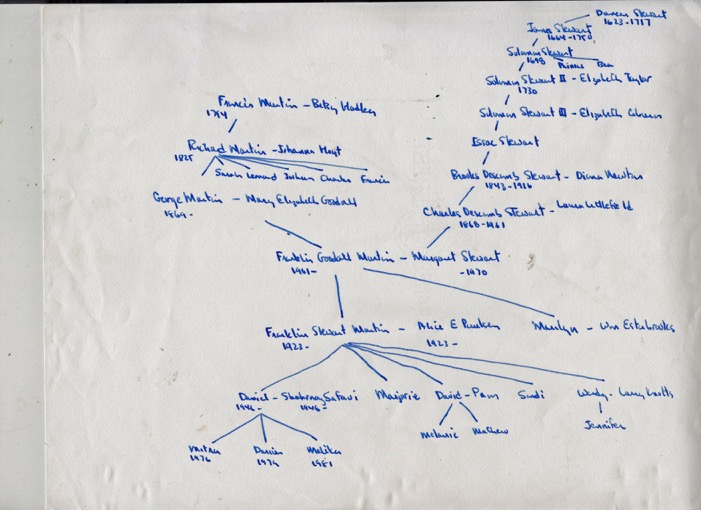 Duncan Stewart
1623-1717
James Stewart
1664-1750
Solomon Stewart
1698
Solomon Stewart II - Elizabeth Taylor
1730
Francis Martin - Betsy Hadley
1794
Solomon Stewart III - Elizabeth
Isaac Stewart
Richard Martin - Johanna Hoyt
1825
Sarah Leonard Julian Charles Francis
Brooks Descomb Stewart - Diana Newton
1843-1916
George Martin - Mary Elizabeth Goodall
1869-
Charles Descomb Stewart - Laura Littlefield
1868-1961
Franklin Goodall Martin - Margaret Stewart
1901- -1970
Franklin Stewart Martin - Alice E
1923- 1923-
Marilyn - Wm Estabrooks
Daniel - Shahrnaz Safavi Marjorie David - Pam Sandi Wendy - Larry Knotts
1946- 1946-
Melanie Mathew
Jennifer
Mitra Darien Melika
1976 1979 1981